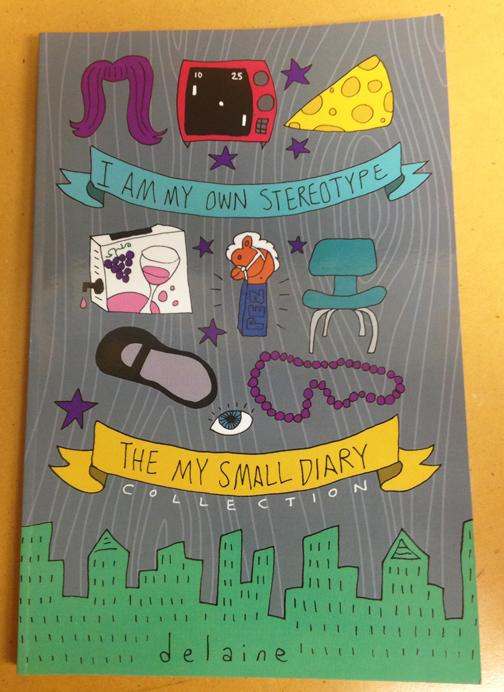 10 25
I AM MY OWN STEREOTYPE
PEZ
THE MY SMALL DIARY
COLLECTION
delaine